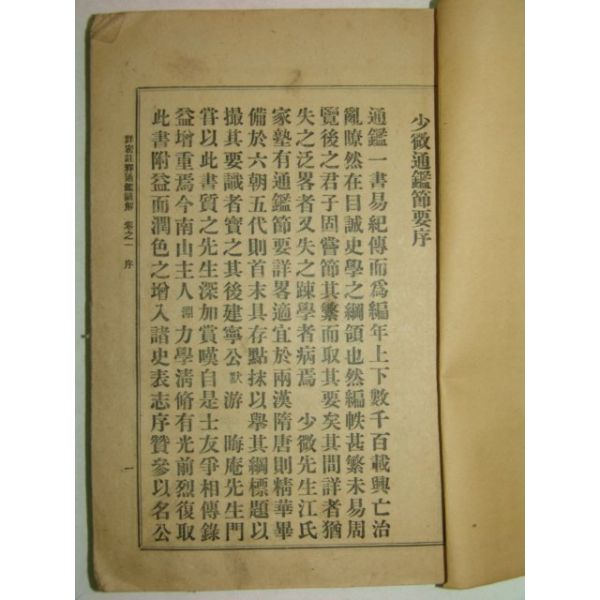 少微通鑑節要序
通鑑一書易紀傳而爲編年上下數千百載興亡治
亂瞭然在目誠史學之綱領也然編帙甚繁未易周
覽後之君子固嘗節其繁而取其要矣其間詳者猶
失之泛畧者又失之踈學者病焉 少微先生江氏
家塾有通鑑節要詳畧適宜於兩漢隋唐則精華畢
備於六朝五代則首末具存點抹以舉其綱標題以
撮其要識者寶之其後建寧公默游 晦庵先生門
甞以此書質之先生深加賞嘆自是士友爭相傳錄
益增重焉今南山主人淵力學淸脩有光前烈復取
此書附益而潤色之增入諸史表志序贊參以名公
詳密註釋通鑑諺解 卷之一 序
一